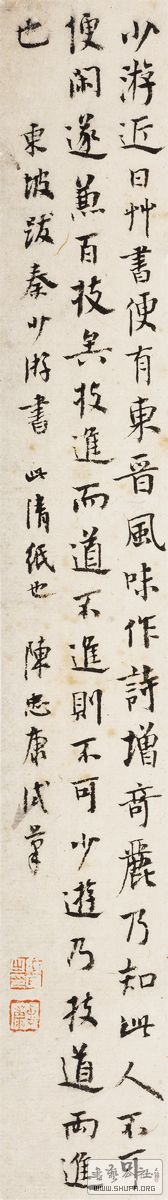 少游近日艸書便有東晉風味作詩增奇麗乃知此人不可
使闲遂兼百技矣技進而道不進則不可少遊乃技道兩進
也 東坡跋秦少游書 此清紙也 陳忠康試筆
WWW.SHUFA.ORG